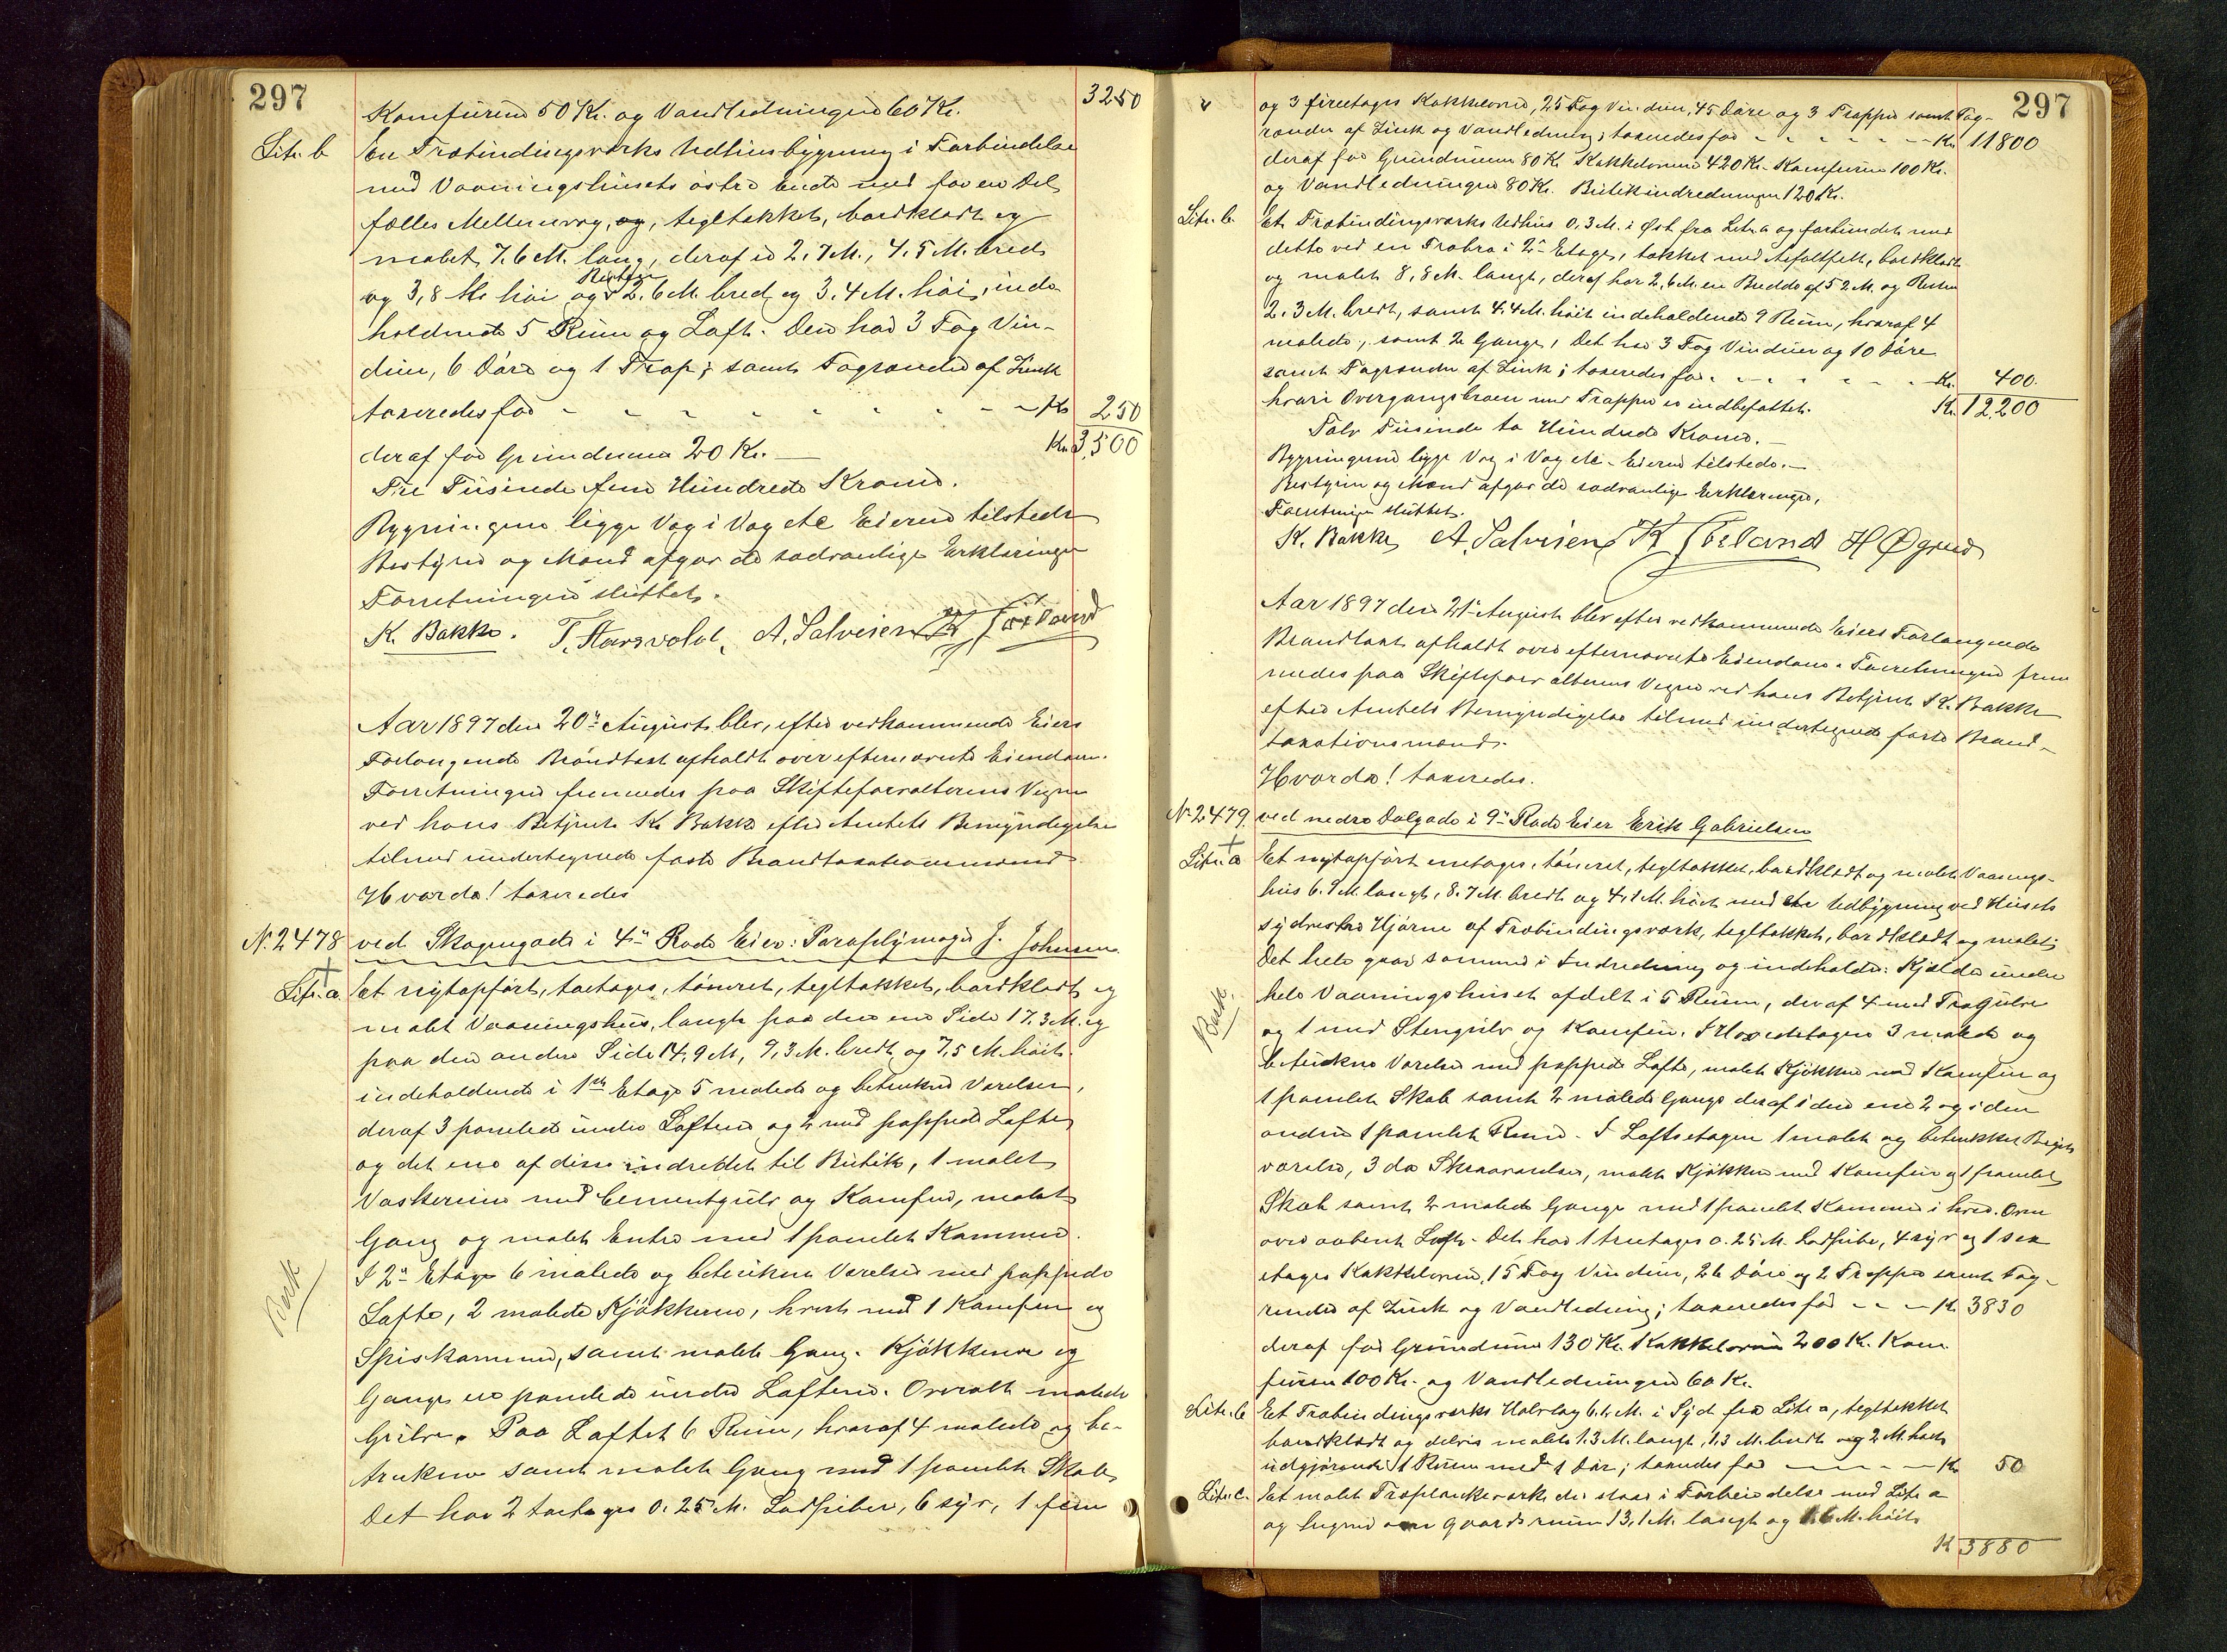 297
Komfurene 50 Kr. og Vandledningen 60 Kr. 3250
Litr. b En Træbindingsværks Udhusbygning i Forbindelse
med Vaaningshusets østre Ende med for en Del
fælles Mellemvæg, og, tegltækket, bordklædt og
malet 7.6 M. lang, deraf er 2.7 M., 4.5 M. bred
og 3,8 M. høi og Resten 2.6 M. bred og 3.4 M. høi, inde-
holdende 5 Rum og Loft. Den har 3 Fag Vin-
duer, 6 Døre og 1 Trap; samt Tagrender af Zink
taxeredes for - - - - Kr. 250
deraf for Grundmuren 20 Kr. — Kr. 3,500
Tre Tusinde fem Hundrede Kroner.
Bygningerne ligge Væg i Væg etc Eieren tilstede
Bestyrer og Mænd afgav de sædvanlige Erklæringer
Forretningen sluttet.
K. Bakke. T. Haarvoldt, A. Salvesen K
Aar 1897 den 20de August blev, efter vedkommende Eiers
Forlangende Brandtaxt afholdt over efternævnte Eiendom.
Forretningen fremmedes paa Skifteforvalterens Vegne
ved hans Betjent K. Bakke efter Amtets Bemyndigelse
tilmed undertegnede faste Brandtaxationsmænd
Hvorda! taxeredes
No. 2478 ved Skagengade i 4de Rode Eier: Paraplymager J. Johnsen
Litr. a Et nytopført, toetages, tømret, tegltækket, bordklædt og
malet Vaaningshus, langt paa den ene Side 17.3 M. og
paa den anden Side 14,9 M, 9,3 M. bredt og 7,5 M. høit.
indeholdende i 1ste Etage 5 malede og betrukne Værelser,
deraf 3 panelede under Lofterne og 2 med pappede Lofter
og det ene af disse indredet til Butik, 1 malet
Vaskerum med Cementgulv og Komfur, malet
Gang og malet Entre med 1 panelet Kammer.
I 2den Etage 6 malede og betrukne Værelser med pappede
Lofte, 2 malede Kjøkkener, hvert med 1 Komfur og
Spiskammer, samt malet Gang. Kjøkkener og
Gange er panelede under Lofterne. Overalt malede
Gulve. Paa Loftet 6 Rum, hvoraf 4 malede og be-
trukne samt malet Gang med 1 panelet Skab.
Det har 2 toetages 0.25 M. Lodpiber, 6 syv, 1 fem
297
og 3 fireetages Kakkelovne, 25 Fag Vinduer, 45 Døre og 3 Trapper samt Tag-
render af Zink og Vandledning; taxeredes for - - - Kr. 11800
deraf for Grundmuren 80 Kr Kakkelovnene 420 Kr. Komfurene 100 Kr.
og Vandledningen 80 Kr. Butikindredningen 120 Kr.
Litr. b. Et Træbindingsværks Udhus 0,3 M. i Øst fra Litr. a og forbundet med
dette ved en Træbro i 2den Etage, tækket med Asfaltfilt, bordklædt
og malet 8,8 M. langt, deraf har 2,6 M. en Bredde af 5.2 M. og Resten
2.3 M. bredt, samt 4.4 M. høit indeholdende 9 Rum, hvoraf 4
malede, samt 2 Gange, Det har 3 Fag Vinduer og 10 Døre
samt Tagrender af Zink; taxeredes for - - - Kr. 400.
hvori Overgangsbroen med Trapper er indbefattet. Kr. 12,200
Tolv Tusinde to Hundrede Kroner. —
Bygningerne ligge Væg i Væg etc. Eieren tilstede. —
Bestyrer og Mænd afgav de sædvanlige Erklæringer,
Forretningen sluttet.
K. Bakke A. Salvesen K H Øgreid
Aar 1897 den 21de August blev efter vedkommende Eiers Forlangende
Brandtaxt afholdt over efternævnte Eiendom. Forretningen frem
medes paa Skifteforvalterens Vegne ved hans Betjent K. Bakke
efter Amtets Bemyndigelse tilmed undertegnede faste Brand-
taxationsmænd.
Hvorda! taxeredes.
No. 2479. ved nedre Dalgade i 9de Rode Eier Erik Gabrielsen
Litr. a Et nytopført enetages, tømret, tegltækket, bordklædt og malet Vaanings-
hus 6.9 M. langt, 8.7 M. bredt og 4,1 M. høit med en Udbygning ved Husets
sydvestre Hjørne af Træbindingsværk, tegltækket, bordklædt og malet;
Det hele gaar sammen i Indredning og indeholder: Kjælder under
hele Vaaningshuset afdelt i 5 Rum, deraf 4 med Trægulve
og 1 med Stengulv og Komfur. I Hovedetagen 3 malede og
betrukne Værelser med pappede Lofte, malet Kjøkken med Komfur og
1 panelet Skab samt 2 malede Gange deraf i den ene 2 og i den
anden 1 panelet Rum. I Loftsetagen 1 malet og betrukket Kvist-
værelse, 3 do Skraaværelser, malet Kjøkken med Komfur og 1 panelet
Skab samt 2 malede Gange med 1 panelet Kammer i hver. Oven
over aabent Loft. Det har 1 treetages 0.25 M. Lodpibe, 4 syv og 1 sex
etages Kakkelovne, 15 Fag Vinduer, 26 Døre og 2 Trapper samt Tag-
render af Zink og Vandledning; taxeredes for - - - Kr. 3830
deraf for Grundmur 130 Kr. Kakkelovne 200 Kr. Kom-
furene 100 Kr. og Vandledningen 60 Kr.
Litr. b Et Træbindingsværks Halvtag 6. M. i Syd fra Litr a, tegltækket
bordklædt og delvis malet 1.3 M. langt, 1,3 M. bredt og 2 M. høit
udgjørende 1 Rum med 1 Dør; taxeredes for — - - Kr. 50
Litr. c. Et malet Træplankeværk der staar i Forbindelse med Litr a
og Gaardsrum 13,1 M. langt og 1.6 M. høit
Kr 3880